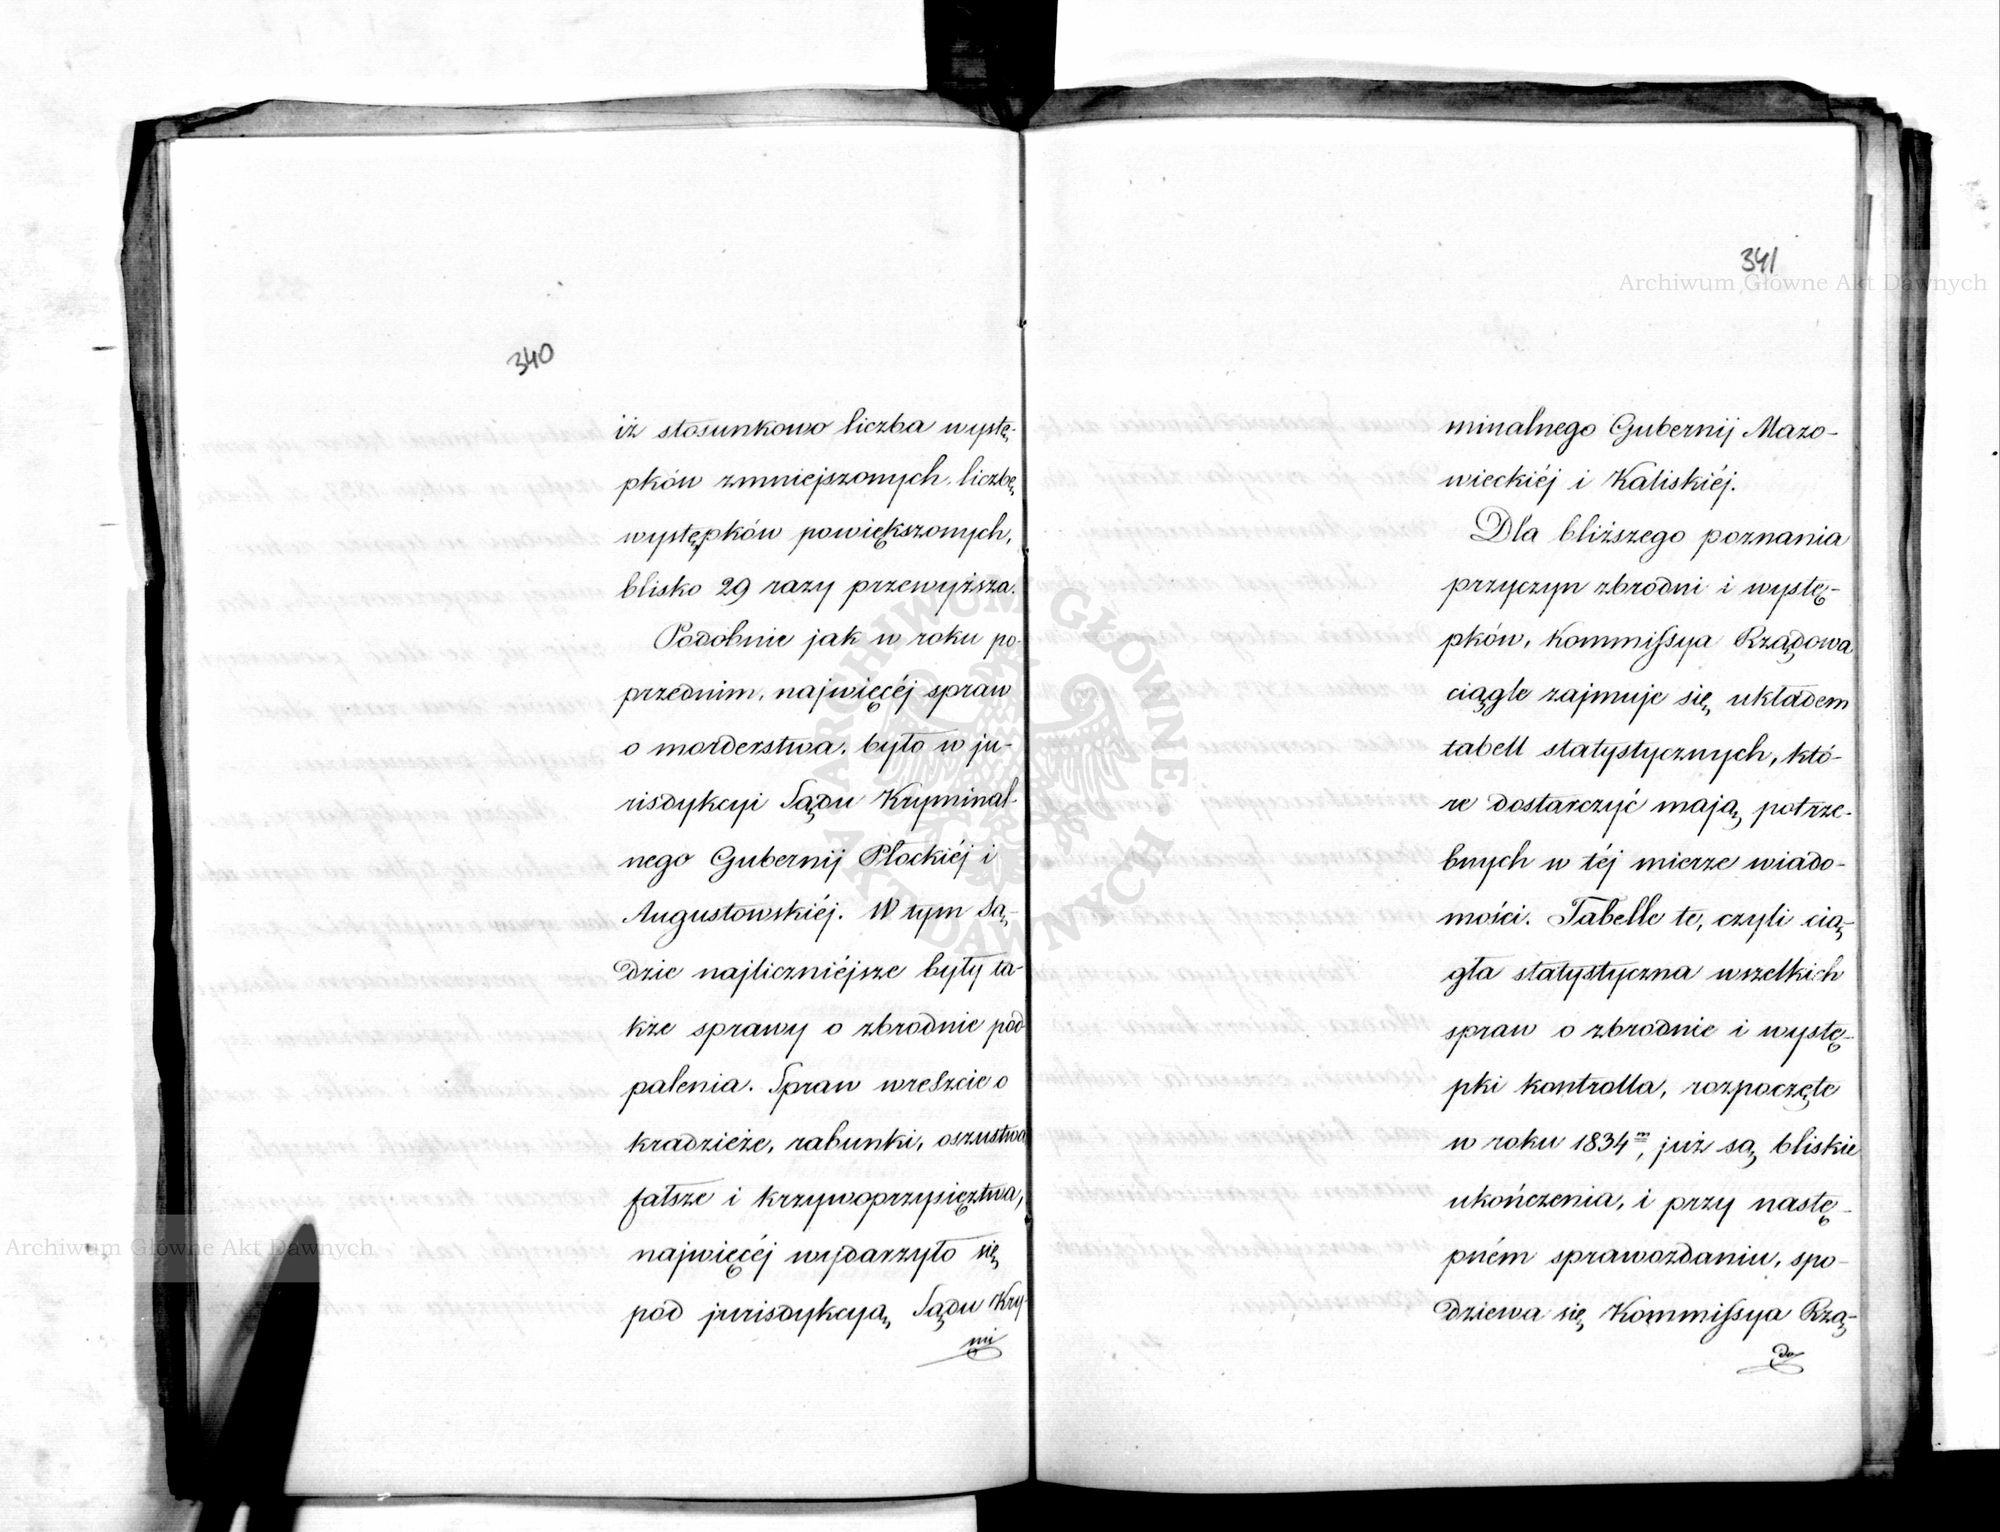 340
iż stosunkowo liczba wystę-
pków zmniejszonych, liczbę
występków powiększonych,
blisko 29 razy przewyższa.
Podobnie jak w roku po-
przednim, najwięcéj spraw
o morderstwa, było w ju-
risdykcyi Sądu Kryminal-
nego Gubernij Płockiéj i
Augustowskiéj. W tym Są-
dzie najliczniéjsze były ta-
kże sprawy o zbrodnie pod-
palenia. Spraw wreszcie o
kradzieże, rabunki, oszustwa
fałsze i krzywoprzysięztwa,
najwięcéj wydarzyło się
pod jurisdykcyą Sądu Kry-
mi
341
minalnego Gubernij Mazo-
wieckiéj i Kaliskiéj.
Dla bliższego poznania
przyczyn zbrodni i wystę-
pków, Kommissya Rządowa
ciągle zajmuje się układem
tabell statystycznych, któ-
re dostarczyć mają potrze-
bnych w téj mierze wiado-
mości. Tabelle te, czyli cią-
gła statystyczna wszelkich
spraw o zbrodnie i wystę-
pki kontrolla, rozpoczęte
w roku 1834m, już są bliskie
ukończenia, i przy nastę-
pném sprawozdaniu, spo-
dziewa się Kommissya Rzą-
do
Archiwum Główne Akt Dawnych
Archiwum Główne Akt Dawnych
ARCHIWUM GŁÓWNE AKT DAWNYCH